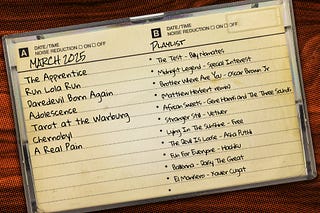 A
DATE/TIME
NOISE REDUCTION ▢ ON ▢ OFF
MARCH 2025
The Apprentice
Run Lola Run
Daredevil Born Again
Adolescence
Tarot at the Warburg
Chernobyl
A Real Pain
B
DATE/TIME
NOISE REDUCTION ▢ ON ▢ OFF
PLAYLIST
• The Test - Billy Nomates
• Midnight Legend - Special Interest
• Brother Where Are You - Oscar Brown Jr
(Matthew Herbert remix)
• African Sweets - Gene Harris And The Three Sounds
• Stranger Still - Vetiver
• Lying In The Sunshine - Free
• The Devil Is Loose - Asha Puthli
• Fun For Everyone -
• Ballerina - Daisy The Great
• El Manisero - Xavier Cugat